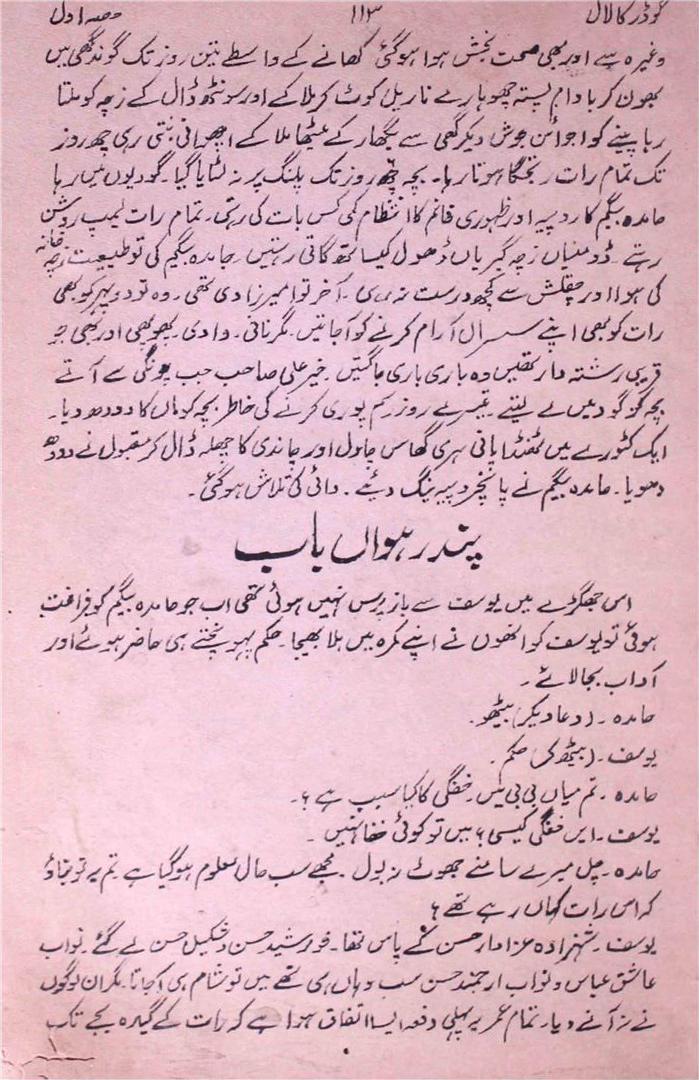 گوڈر کا لال ۱۱۳ حصہ اول
وغیرہ سے اور بھی صحت بخش ہوا ہوگئی کھانے کے واسطے تین روز تک گوند گھی میں
بھون کر بادام پستہ چھوہارے ناریل کوٹ کر ملا کے اور سونٹھ ڈال کے زچہ کو ملتا
رہا پینے کو اجوائن جوش دیکر گھی سے بگھار کے میٹھا ملا کے اچھوانی بنتی رہی چھ روز
تک تمام رات رتجگا ہوتا رہا۔ بچہ چھ روز تک پلنگ پر نہ لٹایا گیا۔ گودیوں میں رہا
حامدہ بیگم کا روپیہ اور ظہوری خانم کا انتظام کمی کس بات کی رہتی۔ تمام رات لیمپ روشن
رہتے۔ ڈومنیاں زچہ گیریاں ڈھول کیساتھ گاتی رہتیں۔ حامدہ بیگم کی تو طبیعت زچہ خانہ
کی ہوا اور چپقلش سے کچھ درست نہ رہی۔ آخر تو امیرزادی تھی۔ وہ تو دوپہر کو بھی
رات کو بھی اپنے سسرال آرام کرنے کو آجاتیں۔ مگر نانی۔ دادی۔ پھوپھی اور بھی جو
قریبی رشتہ دار تھیں وہ باری باری جاگتیں۔ خیر علی صاحب جب چونگی سے آتے
بچہ کو گود میں لے لیتے۔ تیسرے روز رسم پوری کرنے کی خاطر بچہ کو ماں کا دودھ دیا۔
ایک کٹورے میں ٹھنڈا پانی ہری گھاس چاول اور چاندی کا چھلہ ڈال کر مقبول نے دودھ
دھویا۔ حامدہ بیگم نے پانچروپیہ نیگ دیئے۔ دائی کی تلاش ہوگئی۔
پندرہواں باب
اس جھگڑے میں یوسف سے باز پرس نہیں ہوئی تھی اب جو حامدہ بیگم کو فراغت
ہوئی تو یوسف کو انھوں نے اپنے کمرہ میں بلا بھیجا۔ حکم پہونچتے ہی حاضر ہوئے اور
آداب بجا لائے۔
حامدہ۔ (دعا دیکر) بیٹھو۔
یوسف۔ (بیٹھ کر) حکم۔
حامدہ۔ تم میاں بی بی میں خفگی کا کیا سبب ہے؟۔
یوسف۔ ایں خفگی کیسی؟ میں تو کوئی خفا نہیں۔
حامدہ۔ چل میرے سامنے جھوٹ نہ بول۔ مجھے سب حال معلوم ہوگیا ہے تم یہ تو بتاؤ
کہ اس رات کہاں رہے تھے؟
یوسف۔ شہزادہ عزادار حسن کے پاس تھا۔ خورشید حسن و شکیل حسن لے گئے۔ نواب
عاشق عباس و نواب ارجمند حسن سب وہاں ہی تھے میں تو شام ہی آجاتا۔ مگر ان لوگوں
نے نہ آنے دیا۔ تمام عمر یہ پہلی دفعہ ایسا اتفاق ہوا ہے کہ رات کے گیارہ بجے تک